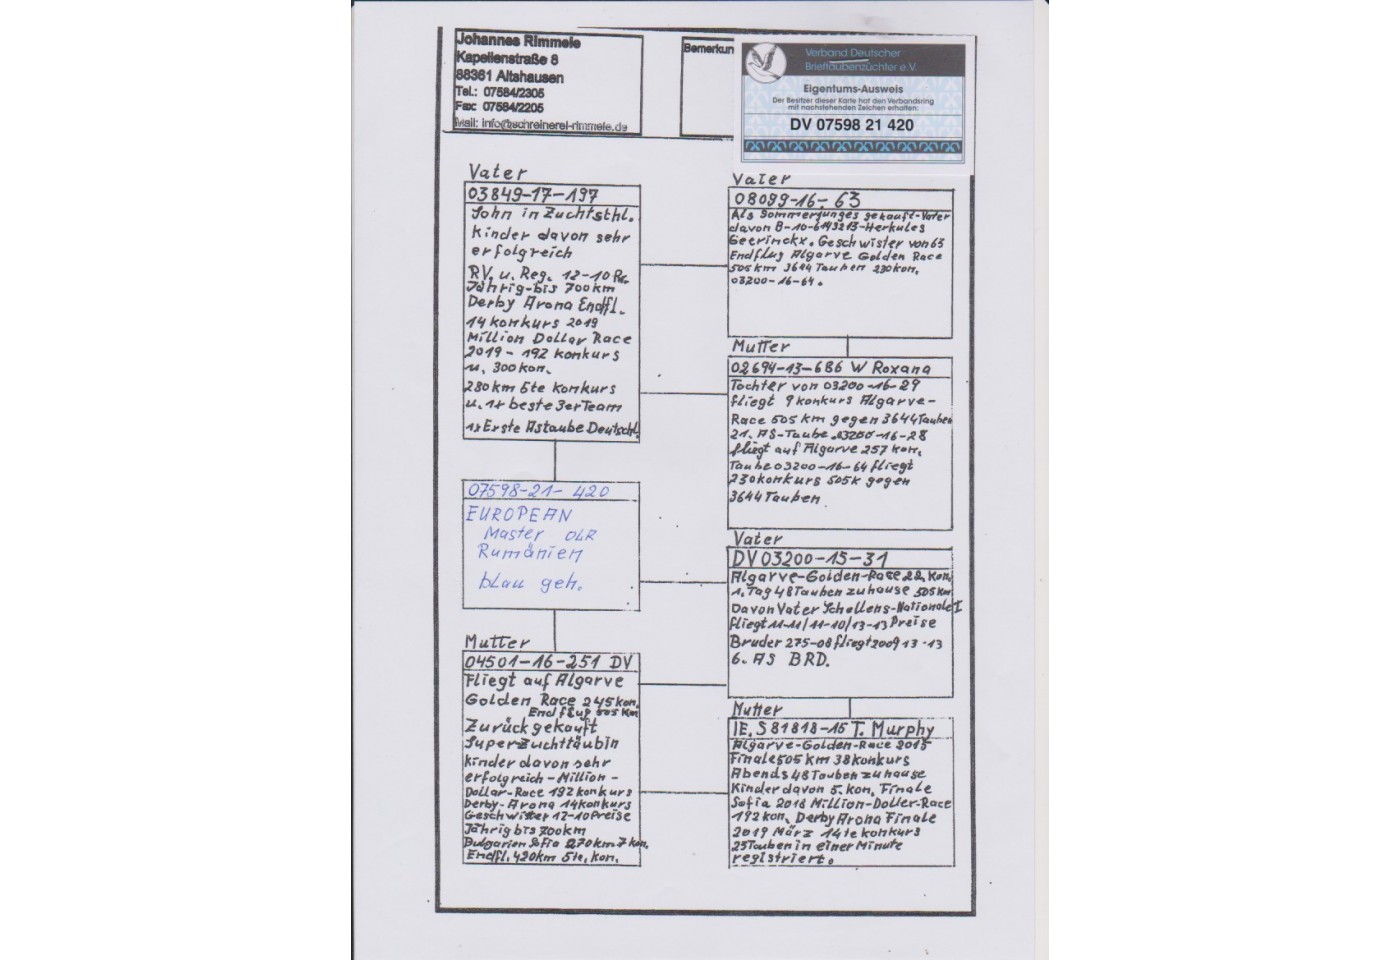 Johannes Rimmele
Kapellenstraße 8
88361 Altshausen
Tel.: 07584/2305
Fax: 07584/2205
Mail: info@schreinerei-rimmele.de
Bemerkun
Verband Deutscher
Brieftaubenzüchter e.V.
Eigentums-Ausweis
Der Besitzer dieser Karte hat den Verbandsring
mit nachstehenden Zeichen erhalten:
DV 07598 21 420
Vater
03849-17-197
Sohn in Zuchtsthl.
Kinder davon sehr
erfolgreich
RV. u. Reg. 12-10 Pr.
Jährig-bis 700km
Derby Arona Endfl.
14 konkurs 2019
Million Dollar Race
2019 - 192 konkurs
u. 300 kon.
280km 5te konkurs
u. 1x beste 3er Team
1x Erste Astaube Deutschl.
07598-21- 420
EUROPEAN
Master OLR
Rumänien
blau geh.
Mutter
04501-16-251 DV
Fliegt auf Algarve
Golden Race 245 kon.
Endflug 505 Km
Zurück gekauft
Super-Zuchttäubin
Kinder davon sehr
erfolgreich - Million -
Dollar-Race 192 konkurs
Derby-Arona 14 konkurs
Geschwister 12-10 Preise
Jährig bis 700km
Bulgarien Sofia 270 km 7 kon.
Endfl. 420km 5te. kon.
Vater
08099-16- 63
Als Sommerjunges gekauft-Vater
davon B-10-6193213-Herkules
Geerinckx. Geschwister von 63
Endflug Algarve Golden Race
505 km 3644 Tauben 230 kon.
03200-16-64.
Mutter
02694-13-686 W Roxana
Tochter von 03200-16-29
fliegt 9 konkurs Algarve-
Race 505 km gegen 3644 Tauben
21. AS-Taube. 03200-16-28
fliegt auf Algarve 257 kon.
Taube 03200-16-64 fliegt
230 konkurs 505k gegen
3644 Tauben
Vater
DV 03200-15-31
Algarve-Golden-Race 22. Kon.
1. Tag 48 Tauben zuhause 505 Km
Davon Vater Schellens-Nationale I
fliegt 11-11/11-10/13-13 Preise
Bruder 275-08 fliegt 2009 13-13
6. AS BRD.
Mutter
IE. S 81818-15 T. Murphy
Algarve-Golden-Race 2015
Finale 505 km 38 konkurs
Abends 48 Tauben zuhause
Kinder davon 5. kon. Finale
Sofia 2018 Million-Doller-Race
192 kon. Derby Arona Finale
2019 März 14te konkurs
25 Tauben in einer Minute
registriert.